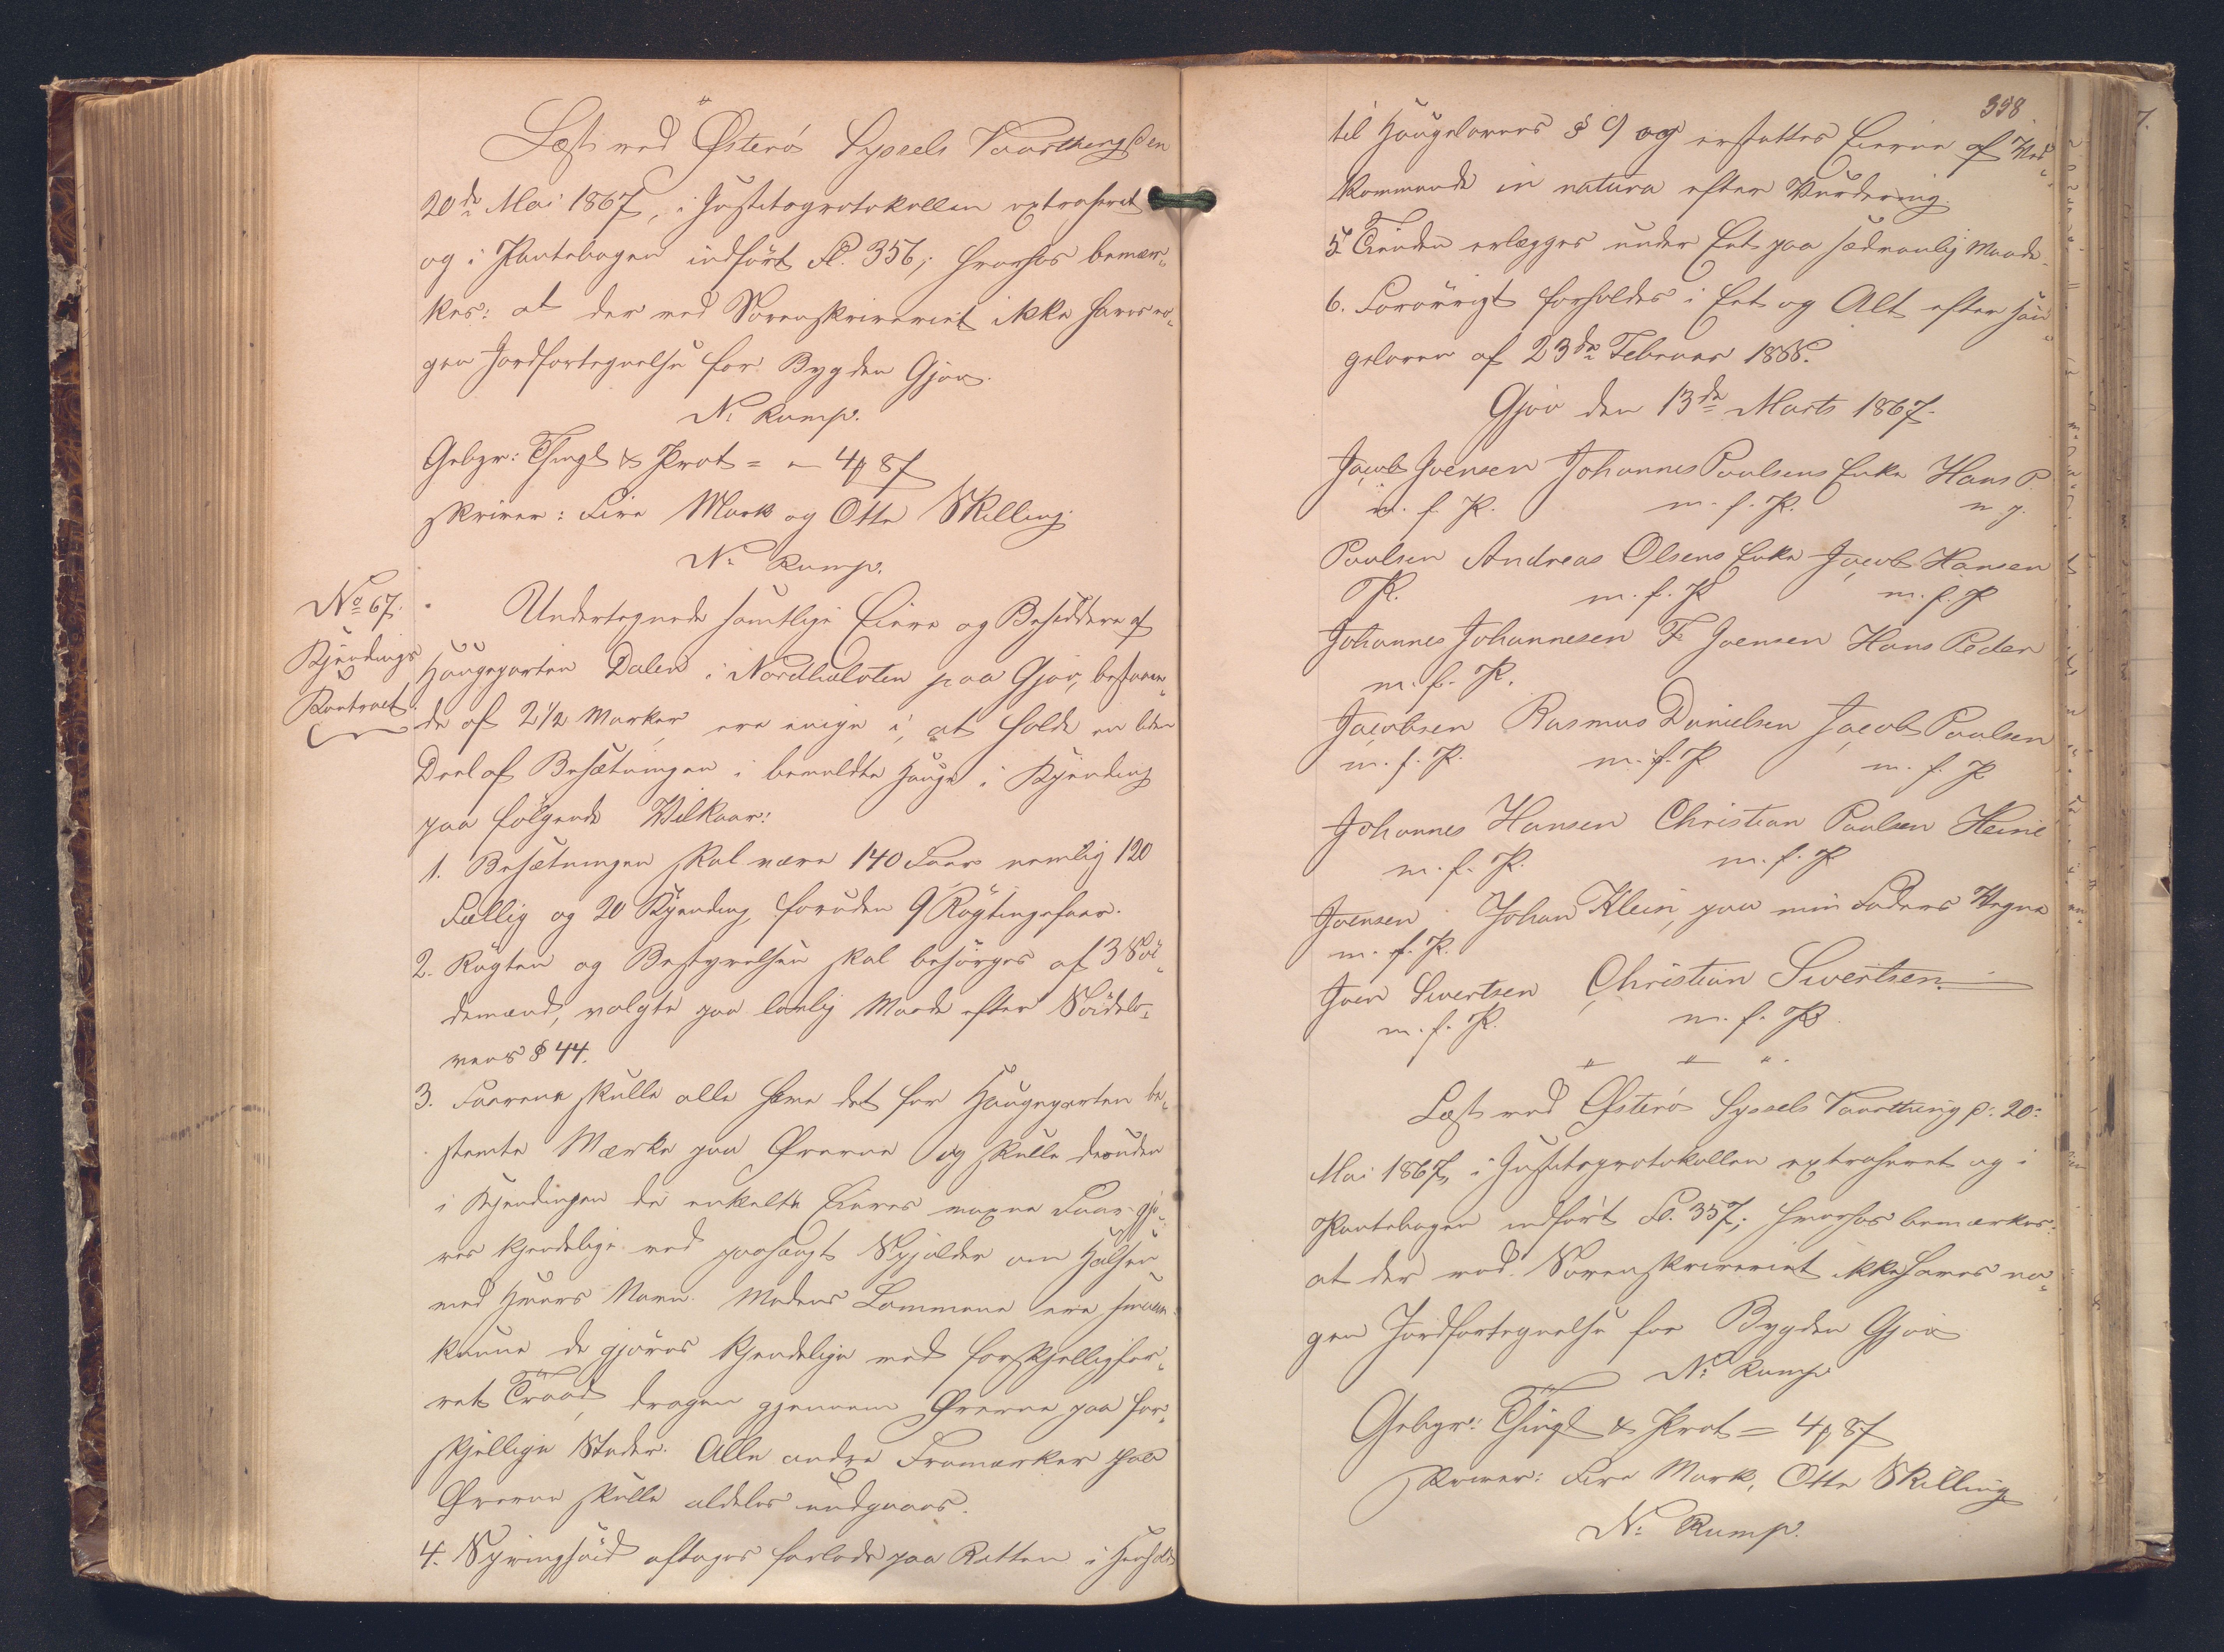 "
Læst ved Østerø Syssels Vaarthing den
20de Mai 1867, i Justitsprotokollen extraheret
og i Pantebogen indført Fl. 356; hvorhos bemær„
kes: at der ved Sorenskriveriet ikke haves no„
gen Jordfortegnelse for Bygden Gjov.
N. Rump.
Gebyr: Thingl & Prot = – 4 ꝑ 8 f
skriver: Fire Mark og Otte Skilling.
N. Rump.
No 67.
Kjendings
Kontract.
Undertegnede samtlige Eiere og Besiddere af
Haugeparten Dalen i Nordhalvten paa Gjov, bestaaen„
de af 2 1/2 Marker, ere enige i, at holde en liden
Deel af Besætningen i bemeldte Hauge i Kjending
paa følgende Vilkaar:
1. Besætningen skal være 140 Faar nemlig 120
Fællig og 20 Kjending, foruden 9 Røgtingsfaar.
2. Røgten og Bestyrelsen skal besørges af 3 Søi„
demænd, valgte paa lovlig Maade efter Søidelo„
vens § 44.
3. Faarene skulle alle have det for Haugeparten be„
stemte Mærke paa Ørerne og skulle desuden
i Kjendingen de enkelte Eieres voxne Faar gjø„
res kjendelige ved paahængt Spjælder om Halsen
med Hvers Navn. Medens Lammene ere smaae
kunne de gjøres kjendelige med forskjelligfar„
vet Traad, dragen gjennem Ørerne paa for„
skjellige Steder. Alle andre Framærker paa
Ørerne skulle aldeles undgaaes.
4. Springhøid aftages forlods paa Retten i Henhold
358
til Haugelovens § 9 og erstattes Eierne af Ved„
kommende in natura efter Vurdering.
5. Tienden erlægges under Eet paa sædvanlig Maade.
6. Forøvrigt forholdes i Eet og Alt efter Hau„
geloven af 23de Februar 1866.
Gjov den 13de Marts 1867.
Jacob Joensen Johannes Poulsens Enke Hans P.
m. f. P. m. f. P. m. f.
Poulsen Andreas Olsens Enke Jacob Hansen
P. m. f. P. m. f. P.
Johannes Johannesen F. Joensen Hans Peder
m. f. P.
Jacobsen Rasmus Danielsen Jacob Poulsen
m. f. P. m. f. P. m. f. P.
Johannes Hansen Christian Poulsen Heine
m. f. P. m. f. P.
Joensen Johan Klein, paa min Faders Vegne
m. f. P.
Joen Sivertsen Christian Sivertsen.
m. f. P. m. f. P.
" " "
Læst ved Østerø Syssels Vaarthing p: 20:
Mai 1867, i Justitsprotokollen extraheret og i
Pantebogen indført Fl. 357; hvorhos bemærkes:
at der ved Sorenskriveriet ikke haves no„
gen Jordfortegnelse for Bygden Gjov
N. Rump
Gebyr: Thingl & Prot = 4 ꝑ 8 f
skriver: Fire Mark, Otte Skilling
N: Rump.